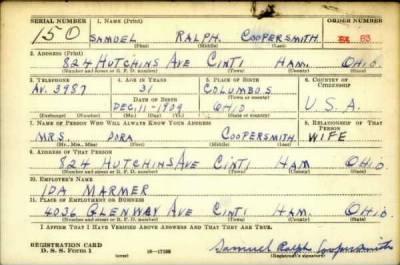 SERIAL NUMBER 1. NAME (Print) ORDER NUMBER
150 SAMUEL RALPH. COOPERSMITH 83
(First) (Middle) (Last)
2. ADDRESS (Print)
824 HUTCHINS AVE CINTI HAM. OHIO.
(Number and street or R. F. D. number) (Town) (County) (State)
3. TELEPHONE 4. AGE IN YEARS 5. PLACE OF BIRTH 6. COUNTRY OF CITIZENSHIP
AV. 3987 31 COLUMBUS
DATE OF BIRTH (Town or county)
DEC-11-1909 OHIO U.S.A.
(Exchange) (Number) (Mo.) (Day) (Yr.) (State or country)
7. NAME OF PERSON WHO WILL ALWAYS KNOW YOUR ADDRESS 8. RELATIONSHIP OF THAT PERSON
MRS. DORA COOPERSMITH WIFE
(Mr., Mrs., Miss) (First) (Middle) (Last)
9. ADDRESS OF THAT PERSON
824 HUTCHINS AVE CINTI HAM OHIO
(Number and street or R. F. D. number) (Town) (County) (State)
10. EMPLOYER'S NAME
IDA MARMER
11. PLACE OF EMPLOYMENT OR BUSINESS
4036 GLENWAY AVE CINTI HAM. OHIO.
(Number and street or R. F. D. number) (Town) (County) (State)
I AFFIRM THAT I HAVE VERIFIED ABOVE ANSWERS AND THAT THEY ARE TRUE.
REGISTRATION CARD
D. S. S. Form 1 (over) Samuel Ralph Coopersmith
(Registrant's signature)